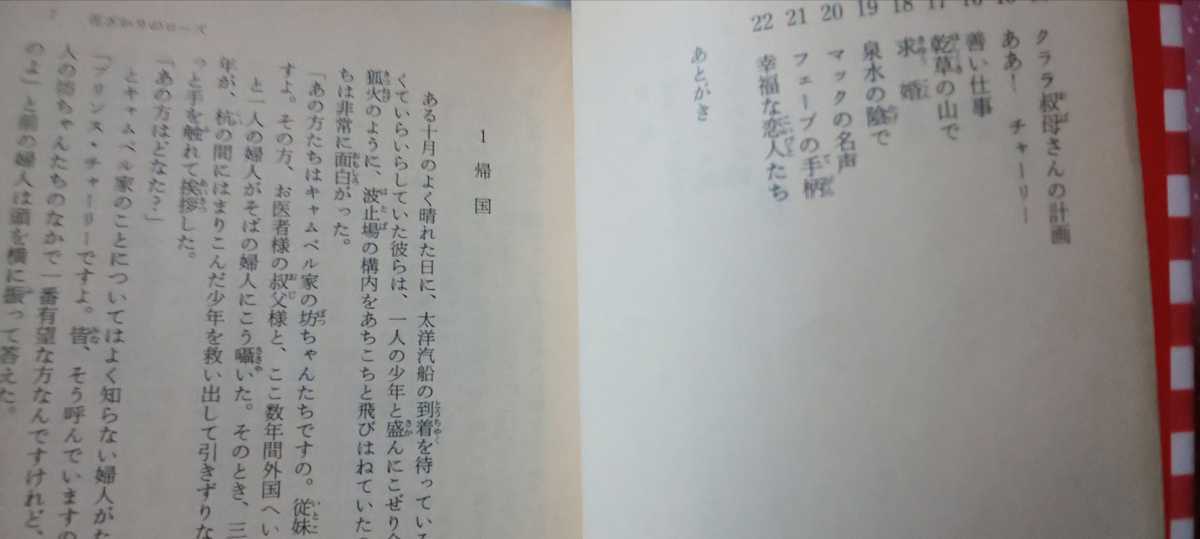 クララ叔母さんの計画
ああ! チャーリー
善い仕事
乾草の山で
18 求婚
19 泉水の陰で
20 マックの名声
21 フェーブの手柄
22 幸福な恋人たち
あとがき
花ざかりのローズ
1 帰国
ある十月のよく晴れた日に、太洋汽船の到着を待っている
くていらいらしていた彼らは、一人の少年と盛んにこぜり
狐火のように、波止場の構内をあちこちと飛びはねていた
ちは非常に面白がった。
「あの方たちはキャムベル家の坊ちゃんたちですの。従妹
すよ。その方、お医者様の叔父様と、ここ数年間外国へい
と一人の婦人がそばの婦人にこう囁いた。そのとき、三
年が、杭の間にはまりこんだ少年を救い出して引きずりな
っと手を触れて挨拶した。
「あの方はどなた?」
とキャムベル家のことについてはよく知らない婦人がた
「プリンス・チャーリーですよ。皆、そう呼んでいますの
人の坊ちゃんたちのなかで一番有望な方なんですけれど、
のよ」と前の婦人は頭を横に振って答えた。